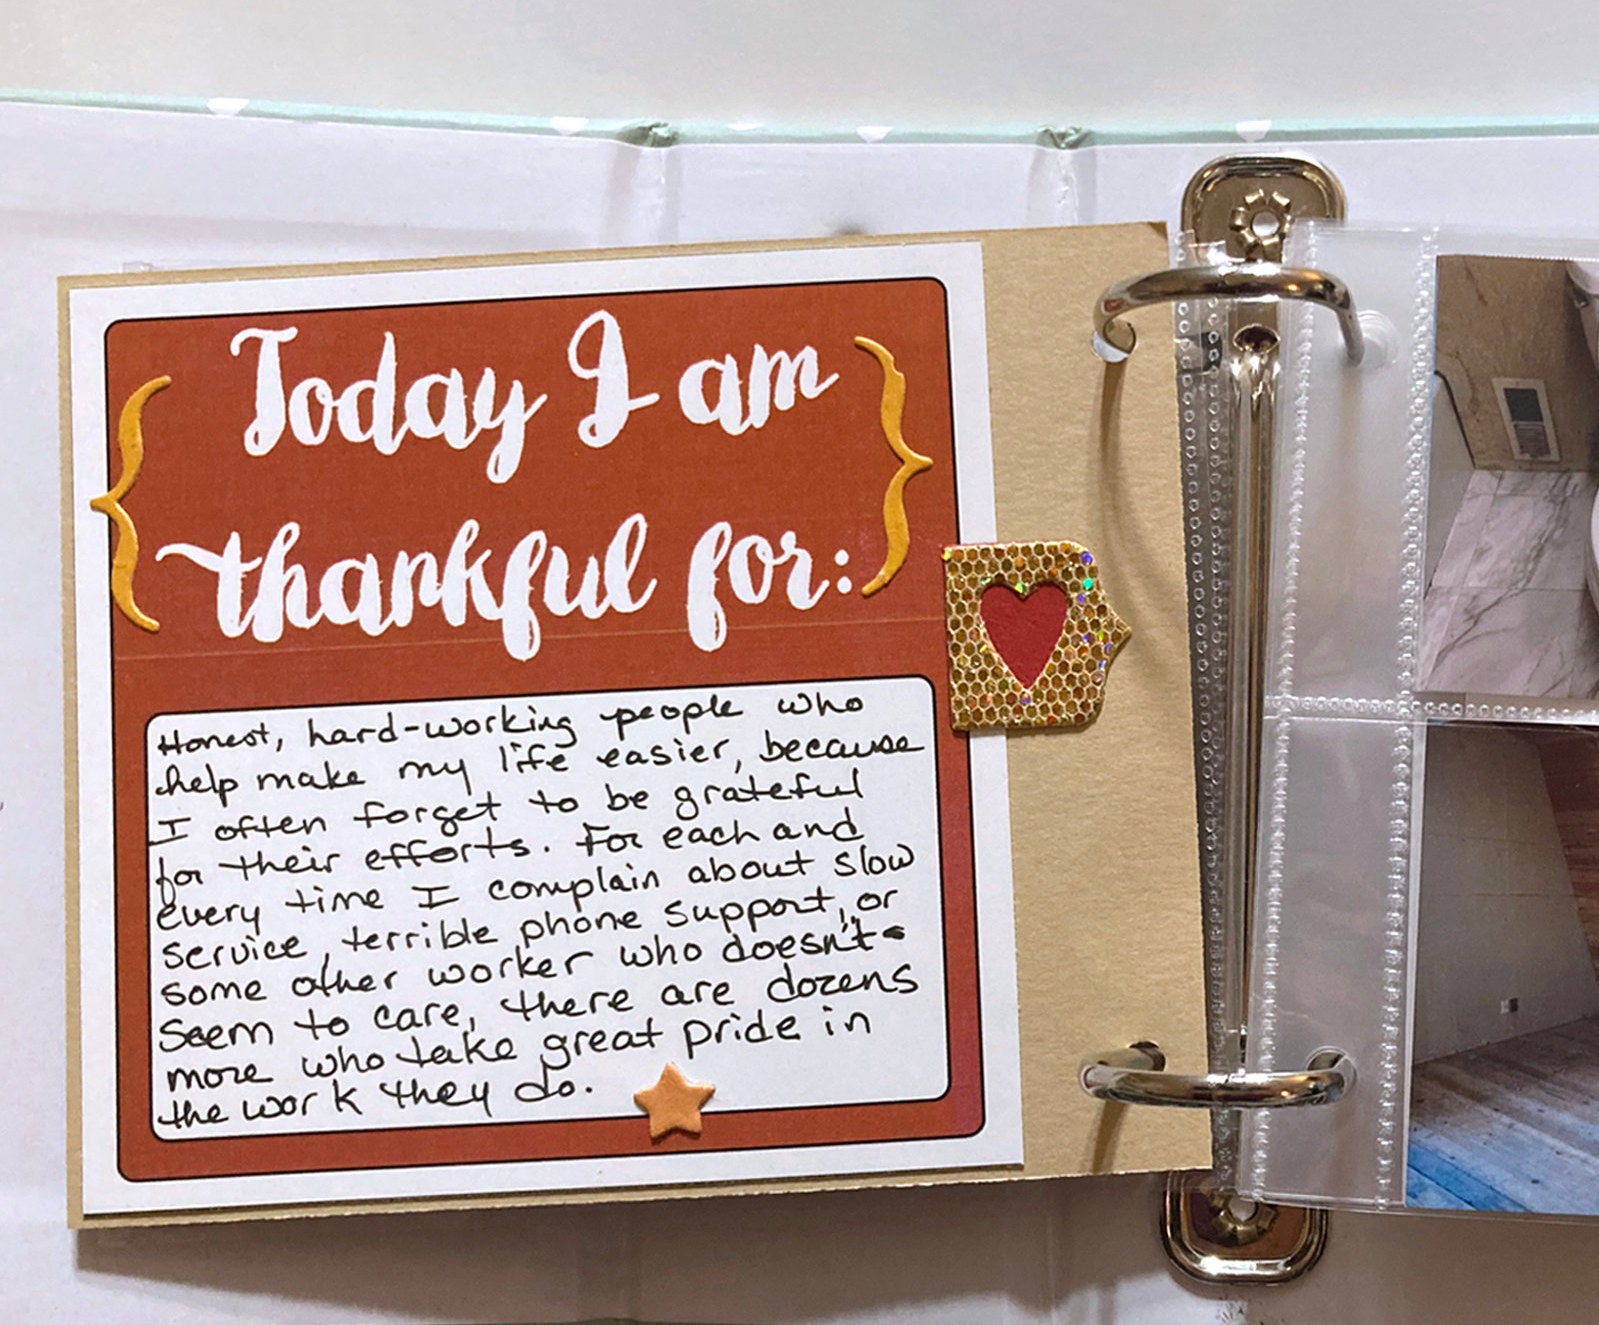 Today I am
thankful for:
Honest, hard-working people who
help make my life easier, because
I often forget to be grateful
for their efforts. For each and
every time I complain about slow
service, terrible phone support, or
some other worker who doesn't
seem to care, there are dozens
more who take great pride in
the work they do.